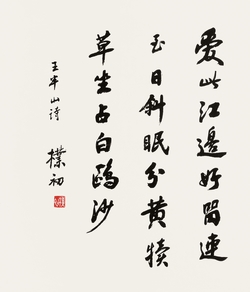 爱此江边好留连
至日斜眠分黄犊
草坐占白鸥沙
王半山诗
朴初